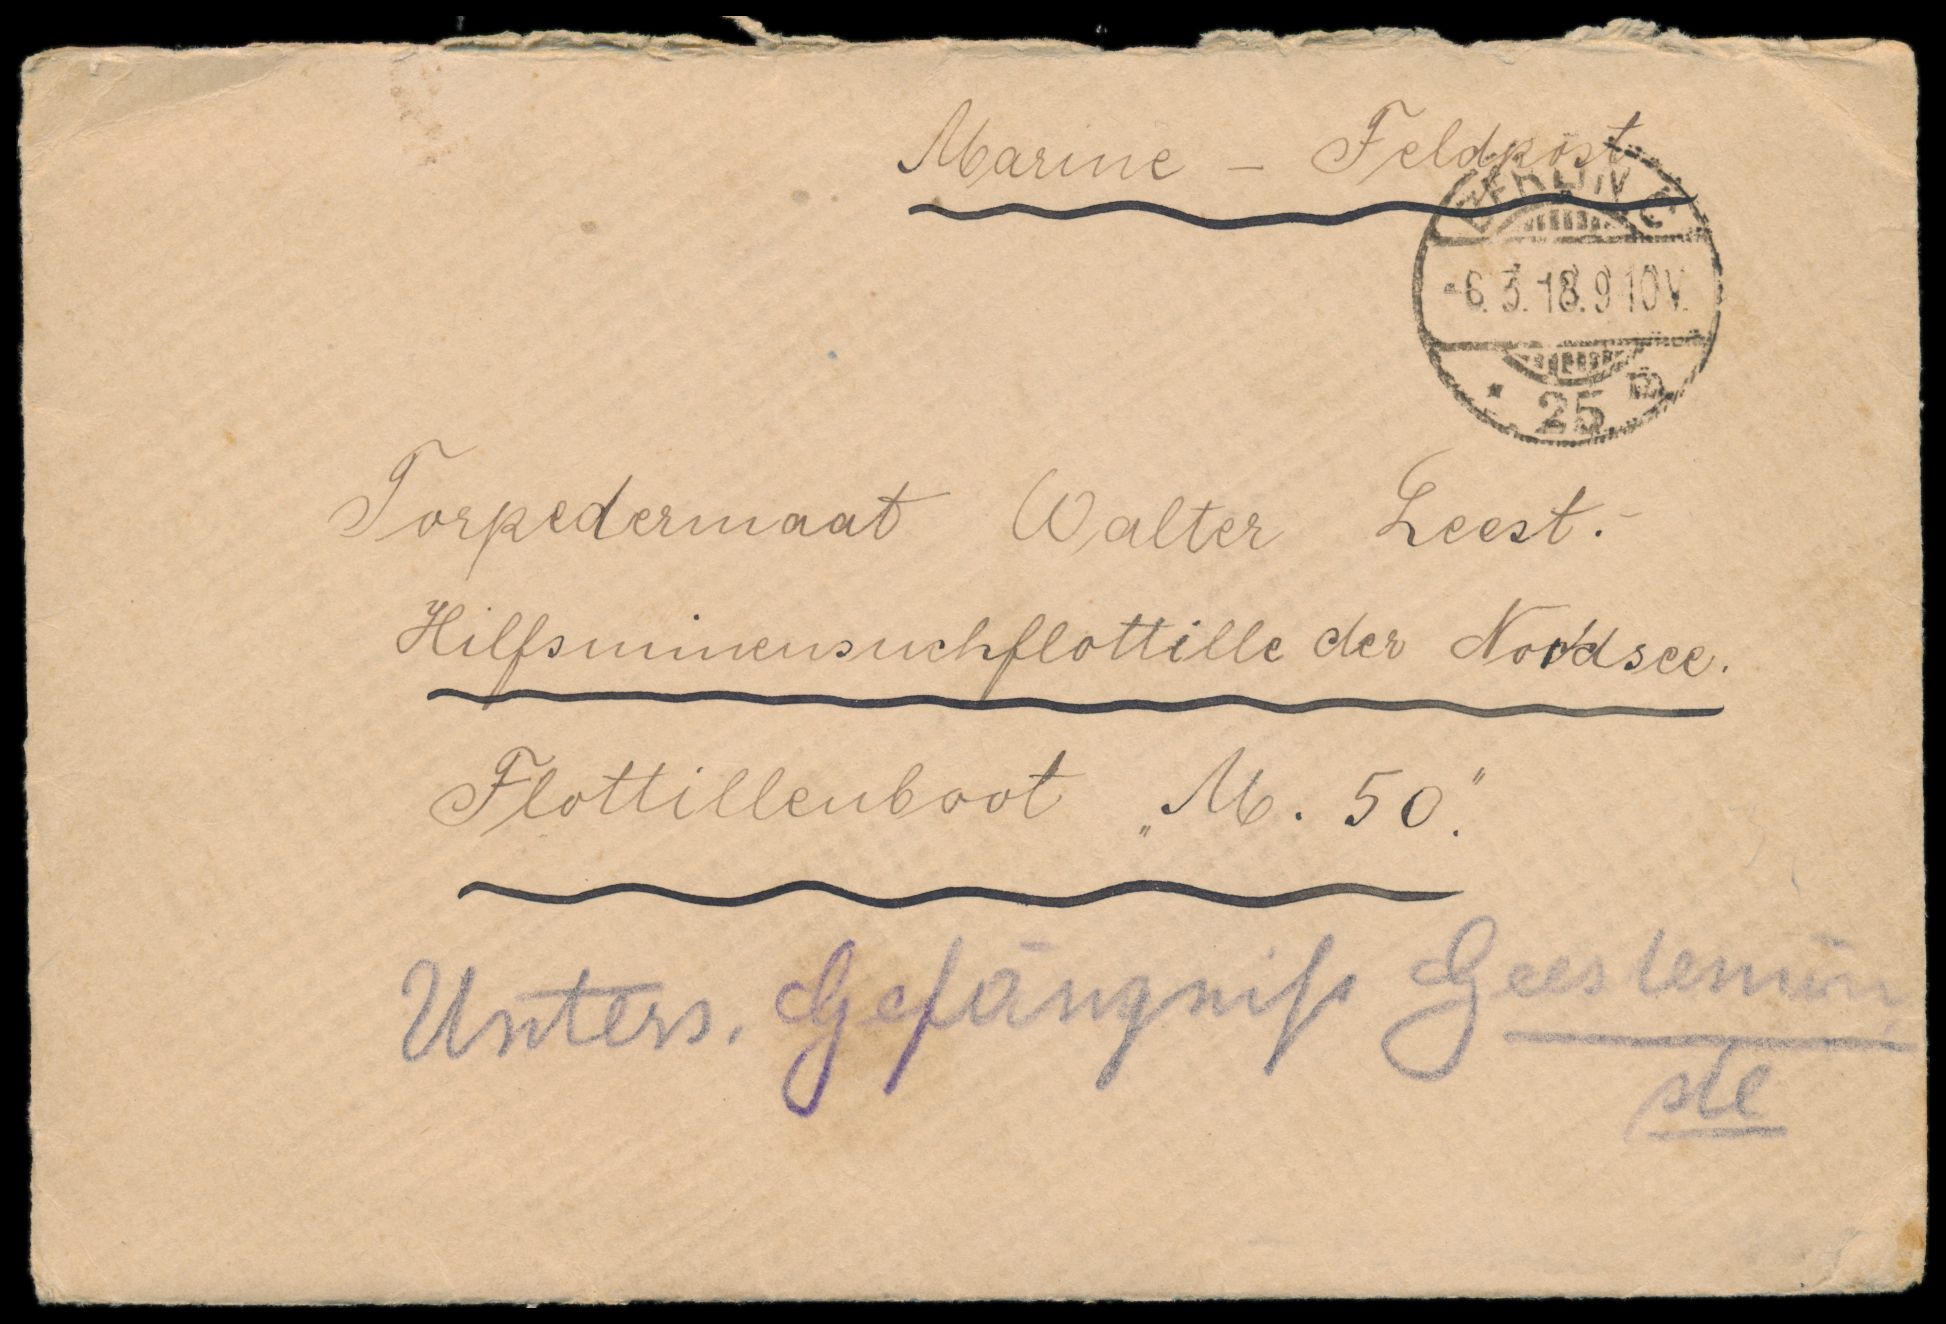 Marine - Feldpost
BERLIN C
-6.3.18.9-10V.
* 25 B
Torpedermaat Walter Leest.-
Hilfsminensuchflottille der Nordsee.
Flottillenboot „M. 50."
Unters. Gefängniß Geestemün